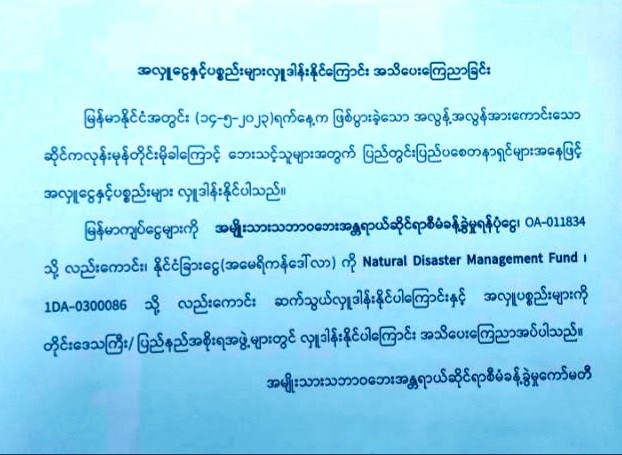 အလှူငွေနှင့်ပစ္စည်းများလှူဒါန်းနိုင်ကြောင်း အသိပေးကြေညာခြင်း
မြန်မာနိုင်ငံအတွင်း (၁၄-၅-၂၀၂၃)ရက်နေ့က ဖြစ်ပွားခဲ့သော အလွန့်အလွန်အားကောင်းသော
ဆိုင်ကလုန်းမုန်တိုင်းမိုခါကြောင့် ဘေးသင့်သူများအတွက် ပြည်တွင်းပြည်ပစေတနာရှင်များအနေဖြင့်
အလှူငွေနှင့်ပစ္စည်းများ လှူဒါန်းနိုင်ပါသည်။
မြန်မာကျပ်ငွေများကို အမျိုးသားသဘာဝဘေးအန္တရာယ်ဆိုင်ရာစီမံခန့်ခွဲမှုရန်ပုံငွေ၊ OA-011834
သို့ လည်းကောင်း၊ နိုင်ငံခြားငွေ(အမေရိကန်ဒေါ်လာ) ကို Natural Disaster Management Fund ၊
1DA-0300086 သို့ လည်းကောင်း ဆက်သွယ်လှူဒါန်းနိုင်ပါကြောင်းနှင့် အလှူပစ္စည်းများကို
တိုင်းဒေသကြီး/ ပြည်နယ်အစိုးရအဖွဲ့များတွင် လှူဒါန်းနိုင်ပါကြောင်း အသိပေးကြေညာအပ်ပါသည်။
အမျိုးသားသဘာဝဘေးအန္တရာယ်ဆိုင်ရာစီမံခန့်ခွဲမှုကော်မတီ